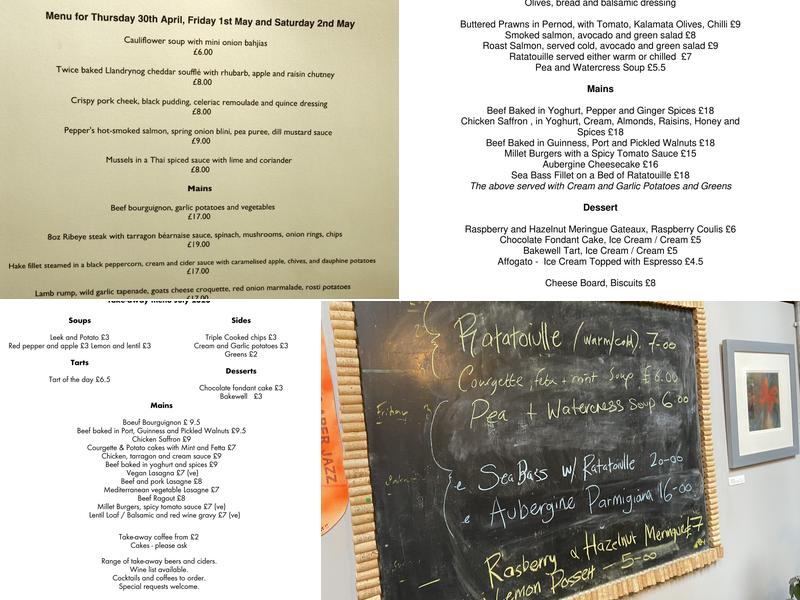 Menu for Thursday 30th April, Friday 1st May and Saturday 2nd May
Cauliflower soup with mini onion bahjias
£6.00
Twice baked Llandrynog cheddar soufflé with rhubarb, apple and raisin chutney
£8.00
Crispy pork cheek, black pudding, celeriac remoulade and quince dressing
£8.00
Pepper's hot-smoked salmon, spring onion blini, pea puree, dill mustard sauce
£9.00
Mussels in a Thai spiced sauce with lime and coriander
£8.00
Mains
Beef bourguignon, garlic potatoes and vegetables
£17.00
8oz Ribeye steak with tarragon béarnaise sauce, spinach, mushrooms, onion rings, chips
£19.00
Hake fillet steamed in a black peppercorn, cream and cider sauce with caramelised apple, chives, and dauphine potatoes
£17.00
Lamb rump, wild garlic tapenade, goats cheese croquette, red onion marmalade, rosti potatoes
£17.00
Olives, bread and balsamic dressing
Buttered Prawns in Pernod, with Tomato, Kalamata Olives, Chilli £9
Smoked salmon, avocado and green salad £8
Roast Salmon, served cold, avocado and green salad £9
Ratatouille served either warm or chilled £7
Pea and Watercress Soup £5.5
Mains
Beef Baked in Yoghurt, Pepper and Ginger Spices £18
Chicken Saffron , in Yoghurt, Cream, Almonds, Raisins, Honey and
Spices £18
Beef Baked in Guinness, Port and Pickled Walnuts £18
Millet Burgers with a Spicy Tomato Sauce £15
Aubergine Cheesecake £16
Sea Bass Fillet on a Bed of Ratatouille £18
The above served with Cream and Garlic Potatoes and Greens
Dessert
Raspberry and Hazelnut Meringue Gateaux, Raspberry Coulis £6
Chocolate Fondant Cake, Ice Cream / Cream £5
Bakewell Tart, Ice Cream / Cream £5
Affogato - Ice Cream Topped with Espresso £4.5
Cheese Board, Biscuits £8
Take-away menu July 2020
Soups
Leek and Potato £3
Red pepper and apple £3 Lemon and lentil £3
Tarts
Tart of the day £6.5
Sides
Triple Cooked chips £3
Cream and Garlic potatoes £3
Greens £2
Desserts
Chocolate fondant cake £3
Bakewell £3
Mains
Boeuf Bourguignon £ 9.5
Beef baked in Port, Guinness and Pickled Walnuts £9.5
Chicken Saffron £9
Courgette & Potato cakes with Mint and Fetta £7
Chicken, tarragon and cream sauce £9
Beef baked in yoghurt and spices £9
Vegan Lasagna £7 (ve)
Beef and pork Lasagne £8
Mediterranean vegetable Lasagne £7
Beef Ragout £8
Millet Burgers, spicy tomato sauce £7 (ve)
Lentil Loaf / Balsamic and red wine gravy £7 (ve)
Take-away coffee from £2
Cakes - please ask
Range of take-away beers and ciders.
Wine list available.
Cocktails and coffees to order.
Special requests welcome.
Ratatouille (warm/cold) 7-00
Courgette, feta + mint Soup £6.00
Pea + Watercress Soup 6.00
Sea Bass w/ Ratatouille 20-00
Aubergine Parmigiana 16-00
Rasberry & Hazelnut Meringue £7
Lemon Possett - 5-00
JAZZ